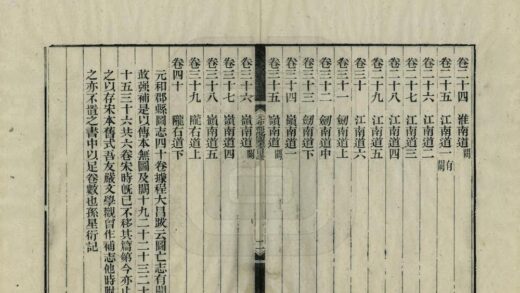 卷二十四　淮南道闕
卷二十五　江南道一有闕
卷二十六　江南道二
卷二十七　江南道三
卷二十八　江南道四
卷二十九　江南道五
卷三十　江南道六
卷三十一　劍南道上
卷三十二　劍南道中
卷三十三　劍南道下
卷三十四　嶺南道一
卷三十五　嶺南道闕
二
卷三十六　嶺南道闕
卷三十七　嶺南道四
卷三十八　嶺南道五
卷三十九　隴右道上
卷四十　隴右道下
元和郡縣圖志四十卷據程大昌跋云圖亡志有闕
故強補是以傳本無圖及闕十九二十二十三二十
十五三十六共六卷宋時旣已不移其篇第今亦止
之以存宋本舊式吾友嚴文學觀曾作補志他時
之亦不遺之書中以足卷數也孫星衍記